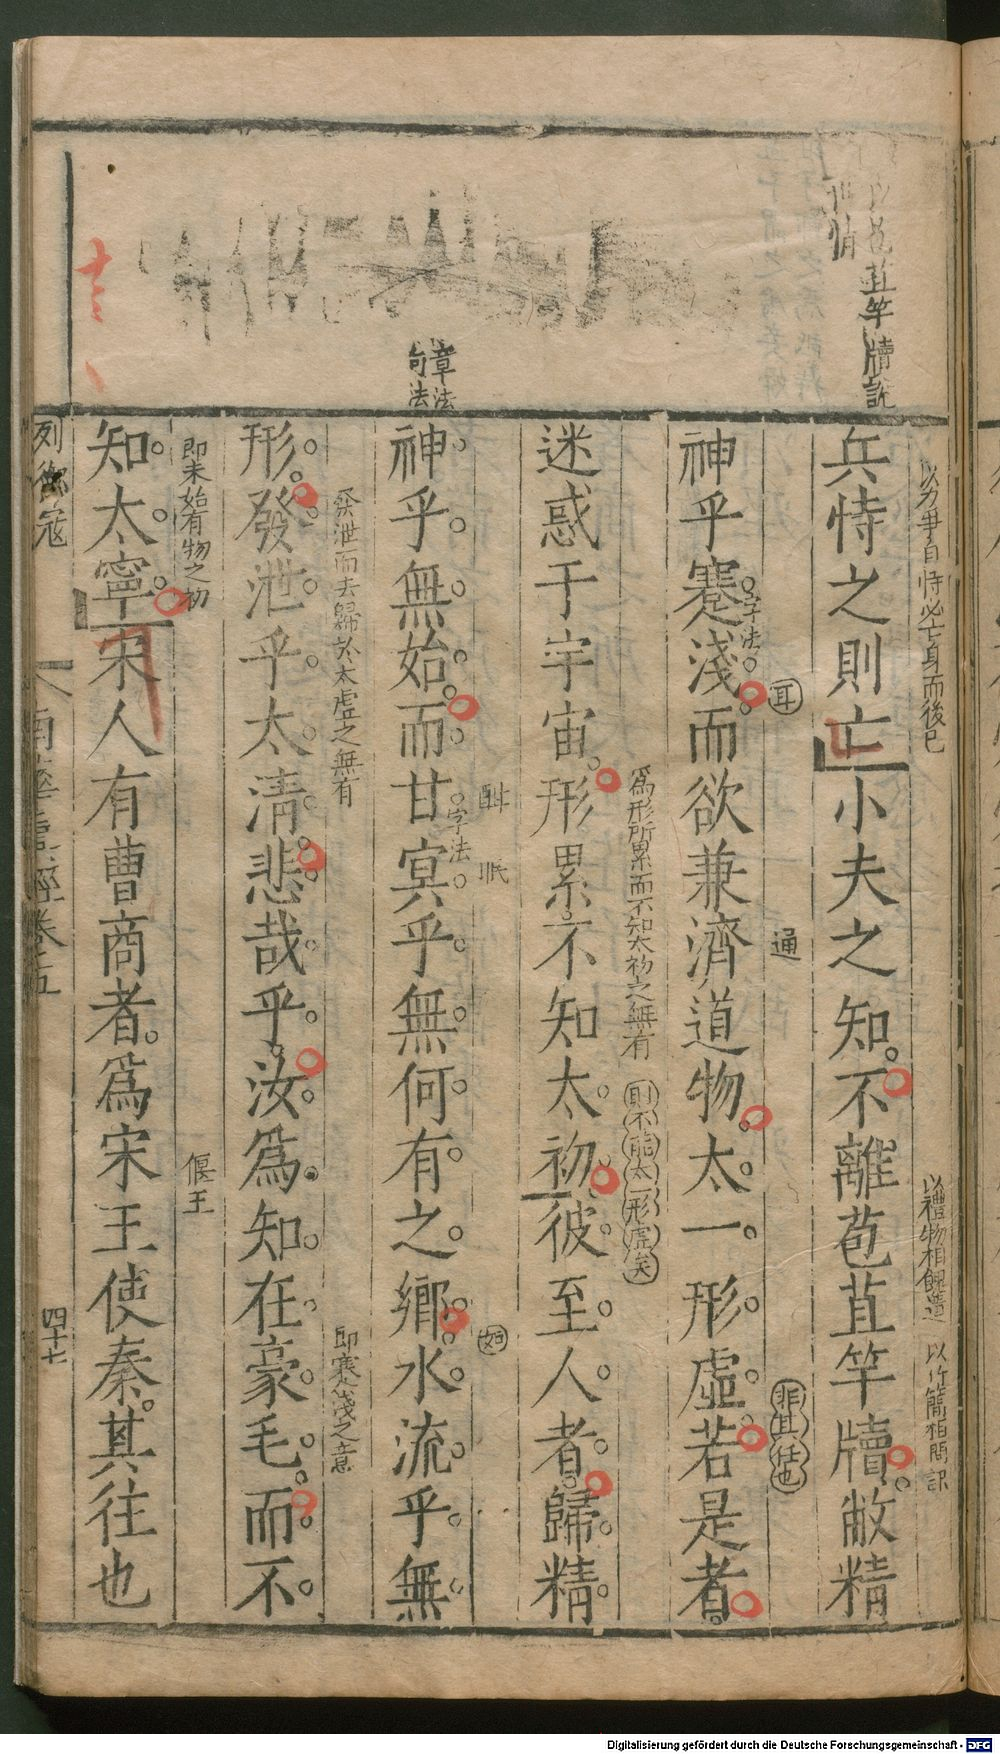 苞苴竿牘說
章法
句法
以力爭自恃必亡身而後已
兵恃之則亡小夫之知不離苞苴竿牘敝精
以禮物相餽遺 以竹簡相問訊
神乎蹇淺而欲兼濟道物太一形虛若是者
字法
耳
通
非其任也
迷惑于宇宙形累不知太初彼至人者歸精
為形所累而不知太初之無有
則不能太一形虛矣
神乎無始而甘冥乎無何有之鄉水流乎無
字法
酣 眠
如
形發泄乎太清悲哉乎汝爲知在豪毛而不
發泄而去歸於太虛之無有
即蹇淺之意
知太寧宋人有曹商者爲宋王使秦其往也
即未始有物之初
偃王
列御寇
南華真經卷五
四十七
Digitalisierung gefördert durch die Deutsche Forschungsgemeinschaft - DFG